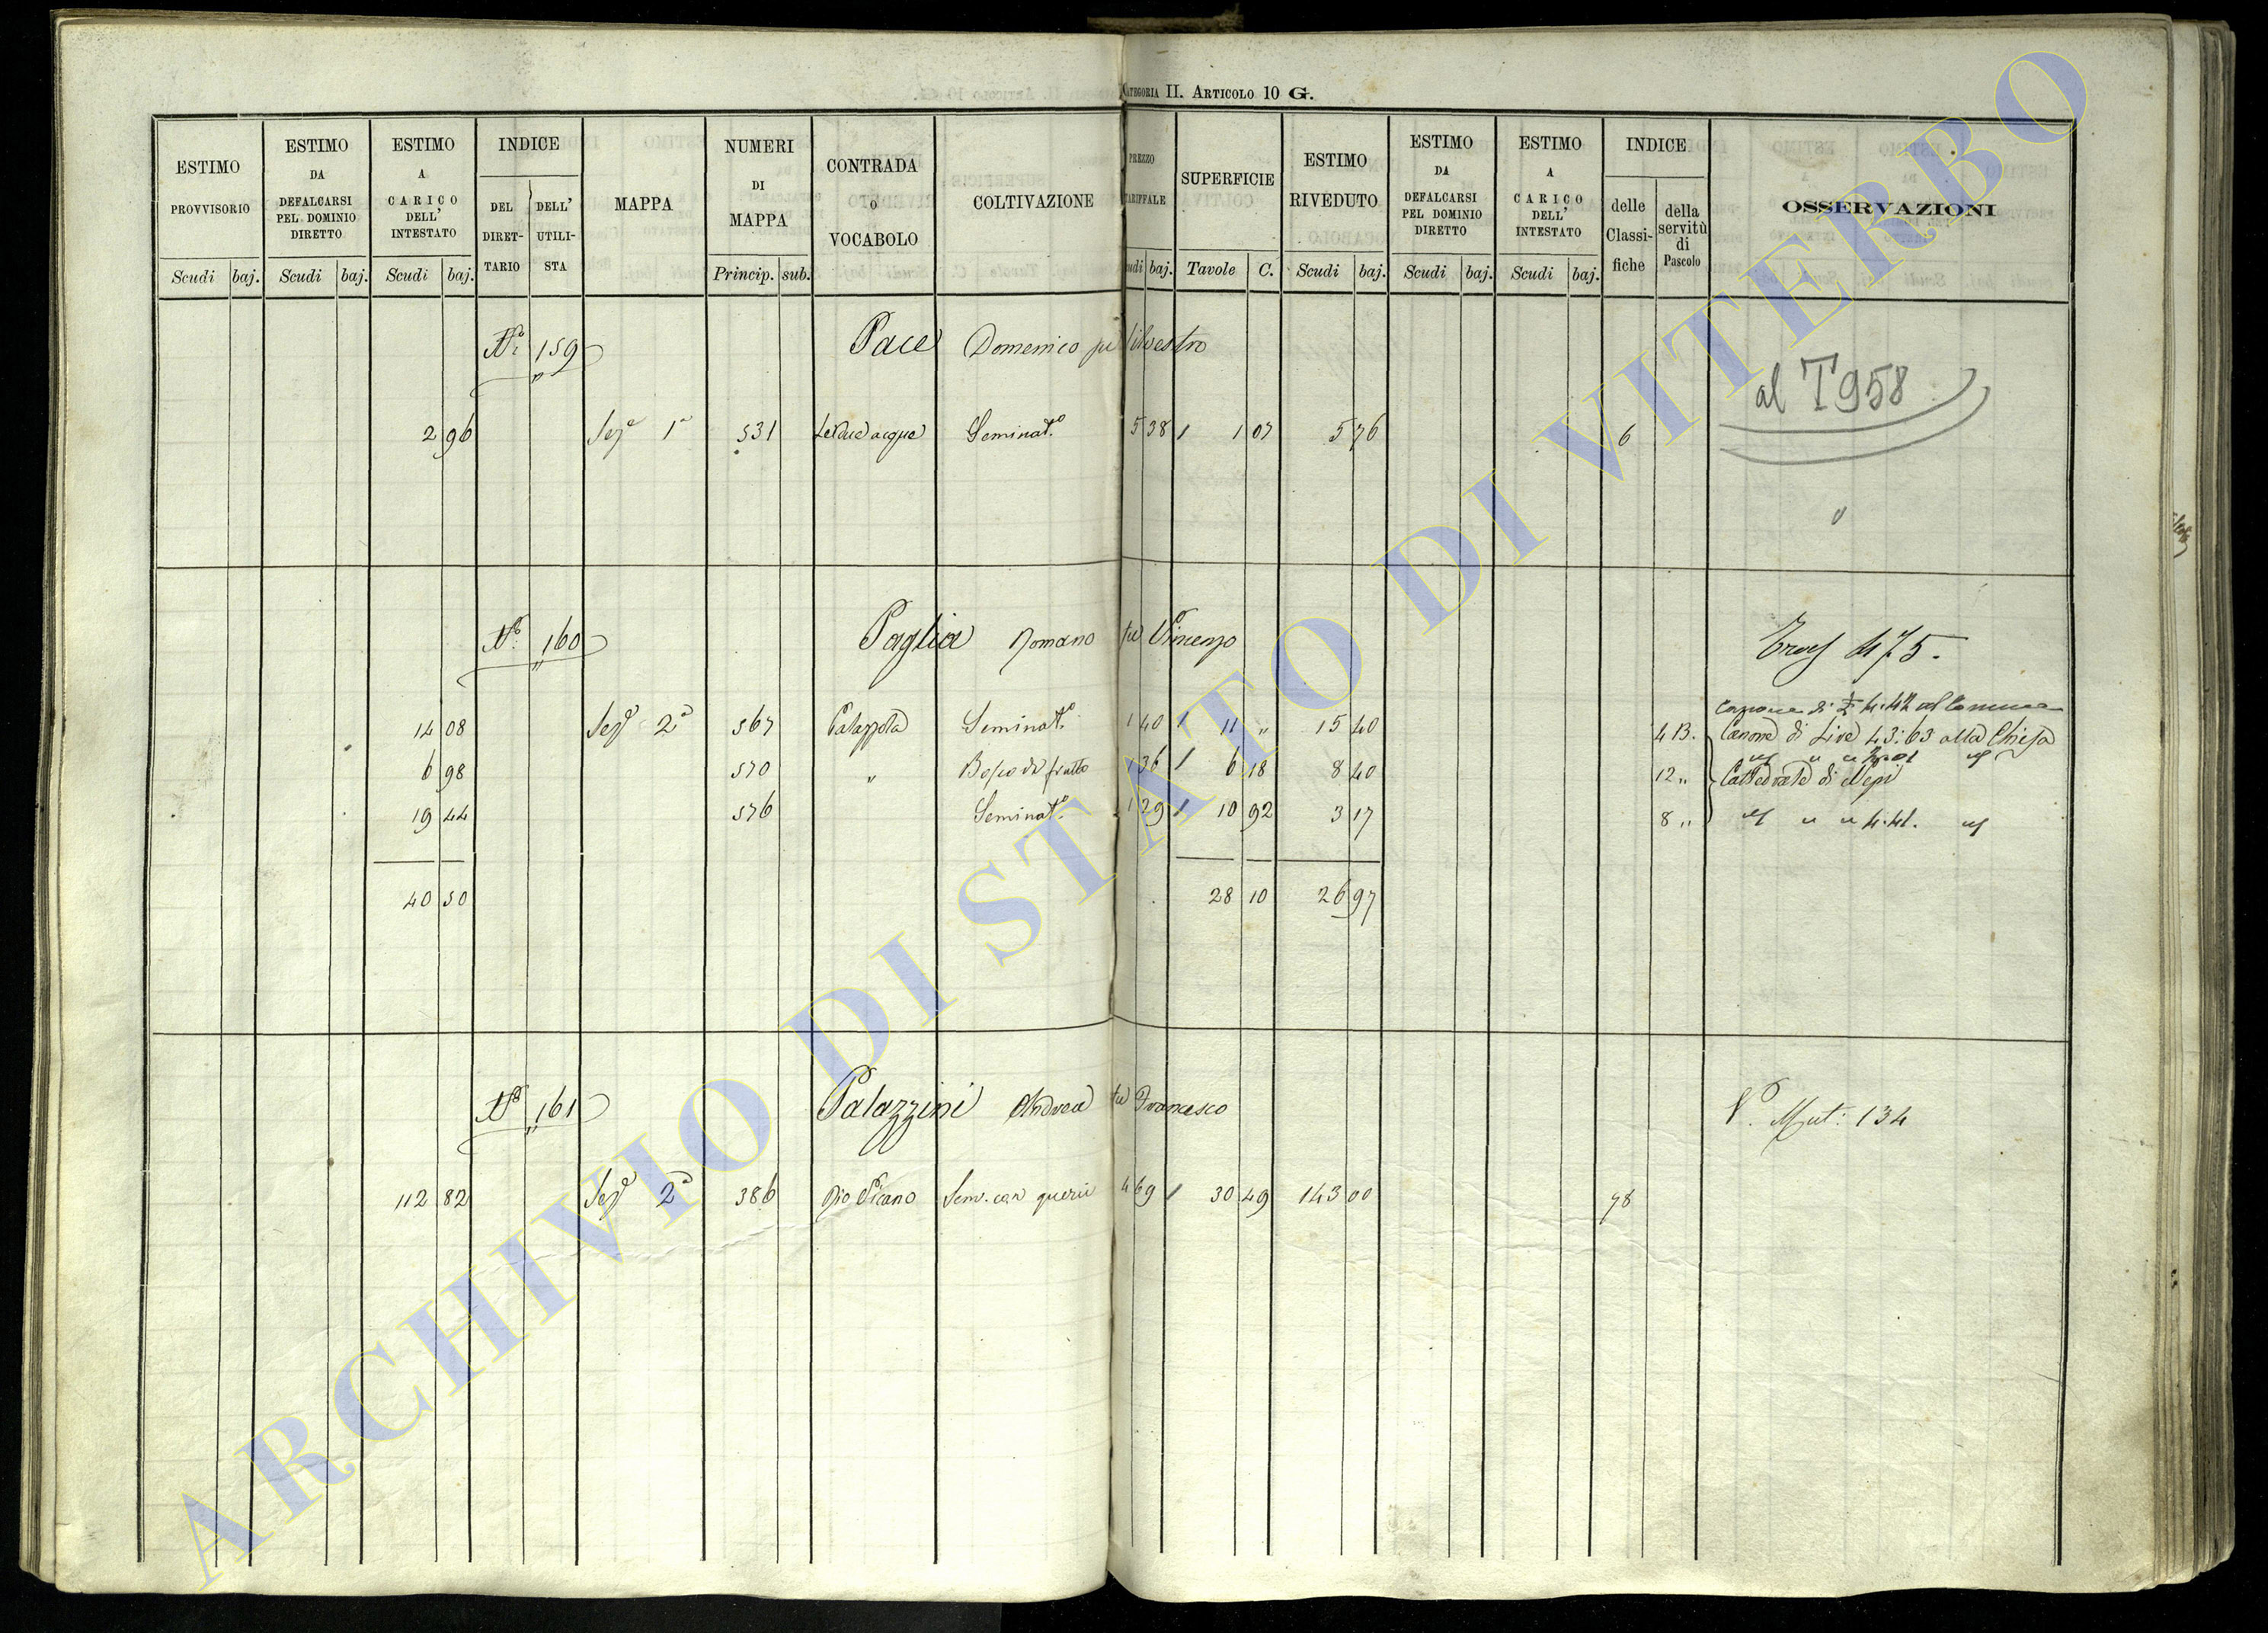 CATEGORIA II. ARTICOLO 10 G.
ESTIMO PROVVISORIO Scudi baj.
ESTIMO DA DEFALCARSI PEL DOMINIO DIRETTO Scudi baj.
ESTIMO A CARICO DELL' INTESTATO Scudi baj.
INDICE DEL DIRETTARIO DELL' UTILISTA
MAPPA
NUMERI DI MAPPA Princip. sub.
CONTRADA O VOCABOLO
COLTIVAZIONE
PREZZO TARIFFALE Scudi baj.
SUPERFICIE Tavole C.
ESTIMO RIVEDUTO Scudi baj.
ESTIMO DA DEFALCARSI PEL DOMINIO DIRETTO Scudi baj.
ESTIMO A CARICO DELL' INTESTATO Scudi baj.
INDICE delle Classifiche della servitù di Pascolo
OSSERVAZIONI
No. 159 Pace Domenico fu Silvestro
al T 958
2 96 Sez.e 1a 531 Le due acque Seminat.o 5 38 1 07 5 76 6
No. 160 Paglia Romano fu Vincenzo
475.
14 08 Sez.e 2a 567 Palazzola Seminat.o 1 40 11 " 15 40 4 B. Canone di Lire 43:63 alla Chiesa
6 98 570 " Bosco da frutto 1 36 6 18 8 40 12 " Cattedrale di Nepi
19 44 576 Seminat.o 29 10 92 3 17 8 "
40 50 28 10 26 97
No. 161 Palazzini Andrea fu Francesco
V. Mut: 134
112 82 Sez.e 2a 386 Rio Vicano Sem. con querce 4 69 30 49 143 00 78
ARCHIVIO DI STATO DI VITERBO